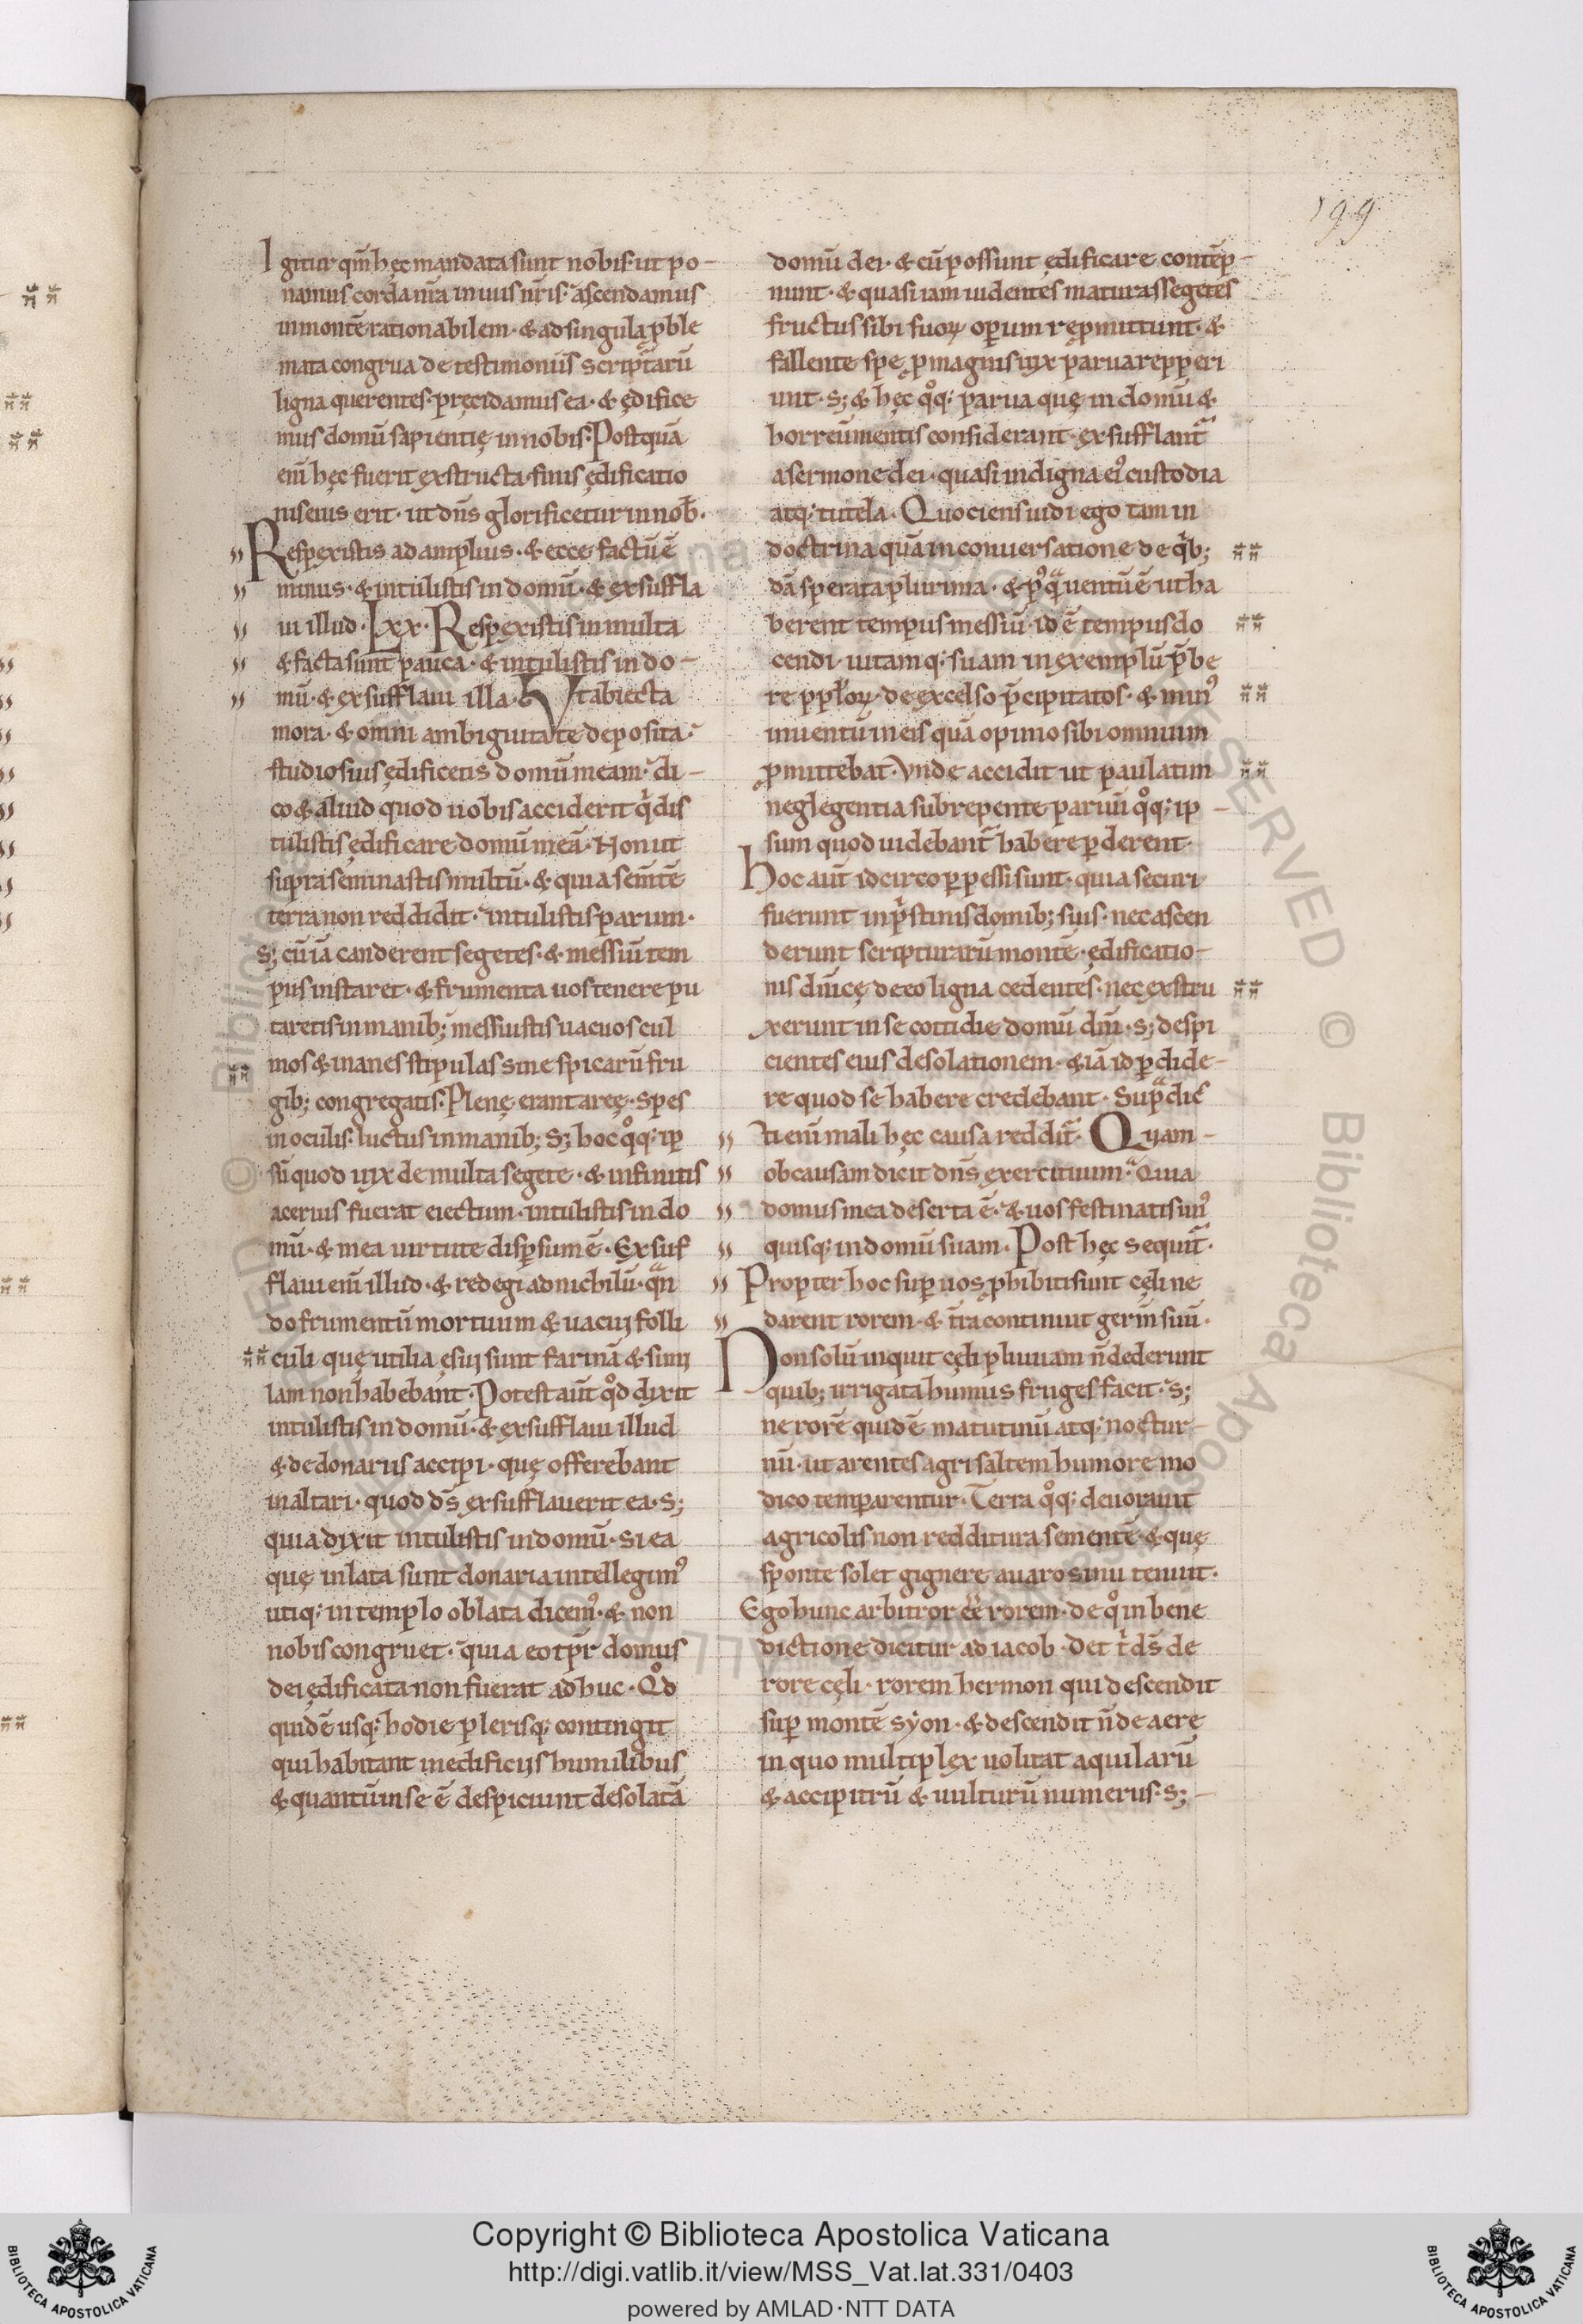 199
Igitur qm̄ hęc mandata sunt nobis· ut po-
namus corda nr̄a in uiis nr̄is· ascendamus
in montē rationabilem· & ad singula ꝓble
mata congrua de testimoniis scripturarū
ligna querentes· pręcidamus ea· & ędifice
mus domū sapientię in nobis· Postquā
enī hęc fuerit exstructa· finis ędificatio
nis eius erit· ut dn̄s glorificetur in nob̄·
Respexistis ad amplius· & ecce factū ē
minus· & intulistis in domū· & exsuffla
ui illud· Lxx· Respexistis in multa
& facta sunt pauca· & intulistis in do-
mū· & exsufflaui illa· hVt abiecta
mora· & omni ambiguitate deposita·
studiosius ędificetis domū meam· di-
co & aliud quod uobis acciderit q̇ dis
tulistis ędificare domū meā· Non ut
supra seminastis multū· & quia semtē
terra non reddidit· intulistis parum·
s; cū iā canderent segetes· & messiū tem
pus instaret· & frumenta uos tenere pu
taretis in manib; messuistis uacuos cul
mos & inanes stipulas sine spicarū fru
gib; congregatis· Plenę erant areę· spes
in oculis· luctus in manib; S; hoc qͦq; ip
sū quod uix de multa segete· & infinitis
aceruis fuerat eiectum· intulistis in do
mū· & mea uirtute dispersum ē· Exsuf
flaui enī illud· & redegi ad nichilū· qn̄
do frumentū mortuum & uacui folli
culi quę utilia esui sunt farinā & simi
lam non habebant· Potest aūt qͦd dixit
intulistis in domū· & exsufflaui illud
& de donariis accipi· quę offerebant
in altari· quod ds̄ exsufflauerit ea· s;
quia dixit intulistis in domū· si ea
quę inlata sunt donaria intellegim᾿
utiq; in templo oblata dicem᾿· & non
nobis congruet· quia eo tp̄r domus
dei ędificata non fuerat adhuc· Qͦd
quidē usq; hodie plerisq; contingit
qui habitant in edificiis humilibus
& quantū in se ē despiciunt desolatā
domū dei· & cū possunt ędificare contēp-
nunt· & quasi iam uidentes maturas segetes
fructus sibi suoꝝ operum repromittunt· &
fallente spe ꝓ magnis uix parua reppperi
unt· S; & hęc qͦq; parua quę in domū &
horreū mentis considerant· exsufflant᷑
a sermone dei· quasi indigna ei᾿ custodia
atq; tutela· Quociens uidi ego tam in
doctrina quā in conuersatione de q̇b;
dā sperata plurima· & p᾿q̄ uentū ē ut ha
berent tempus messiū· id ē tempus do
cendi· uitamq; suam in exemplū p̄be
re pplo̅ꝝ· de excelso p̄cipitatos· & min᾿
inuentū in eis quā opinio sibi omnium
ꝓmittebat· Vnde accidit ut paulatim
neglegentia subrepente paruū qͦq; ip-
sum quod uidebant᷑ habere ꝑderent·
Hoc aūt idcirco ꝑpessi sunt· quia securi
fuerunt in p̄stinis domib; suis· nec ascen
derunt scripturarū montē· ędificatio-
nis dn̄icę de eo ligna cedentes· nec exstru
xerunt in se cottidie domū dn̄i· s; despi
cientes eius desolationem· & iā id ꝑdide-
re quod se habere credebant· Supͣdic̄
ti enī mali hęc causa reddit᷑· Quam-
ob causam dicit dn̄s exercituum· Quia
domus mea deserta ē· & uos festinatis un᾿
quisq; in domū suam· Post hęc sequit᷑·
Propter hoc suꝑ uos ꝓhibiti sunt cęli ne
darent rorem· & tr̄a continuit germ̄ suū·
Non solū inquit cęli pluuiam n̄ dederunt
quib; irrigata humus fruges facit· s;
ne rorē quidē matutinū atq; noctur-
nū· ut arentes agri saltem humore mo
dico temꝑarentur· Terra qͦq; deuorauit
agricolis non redditura sementē· & quę
sponte solet gignere auaro sinu tenuit·
Ego hunc arbitror eē rorem· de qͦ in bene
dictione dicitur ad iacob· Det t̓ ds̄ de
rore cęli· rorem hermon qui descendit
suꝑ montē syon· & descendit n̄ de aere
in quo multiplex uolitat aquilarū
& accipitrū & uulturū numerus· s;-
Copyright © Biblioteca Apostolica Vaticana
http://digi.vatlib.it/view/MSS_Vat.lat.331/0403
powered by AMLAD·NTT DATA
BIBLIOTECA APOSTOLICA VATICANA
BIBLIOTECA APOSTOLICA VATICANA